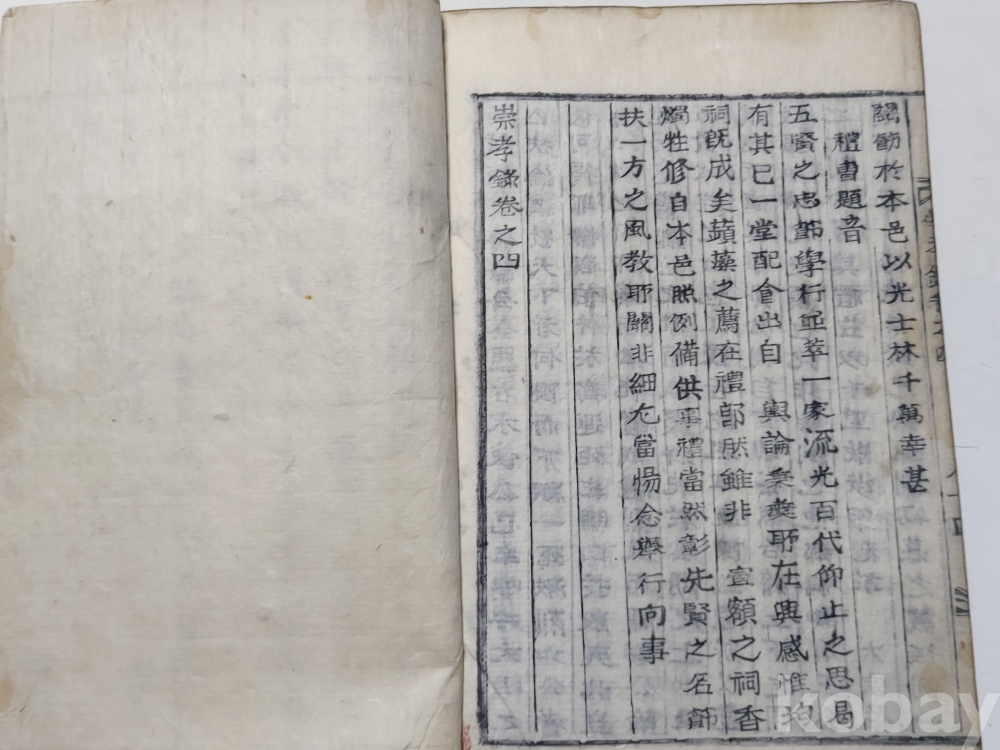 關節於本邑以光士林千萬幸甚
禮曹題音
五賢之忠節學行並萃一家流光百代仰止之思曷
有其已一堂配食出自 輿論秉彛所在興感惟均
祠旣成矣蘋藻之薦在禮卽然雖非 宣額之祠香
燭牲修自本邑照例備供事禮當然彰先賢之名節
扶一方之風敎所關非細尤當惕念擧行向事
崇孝錄卷之四
kobay